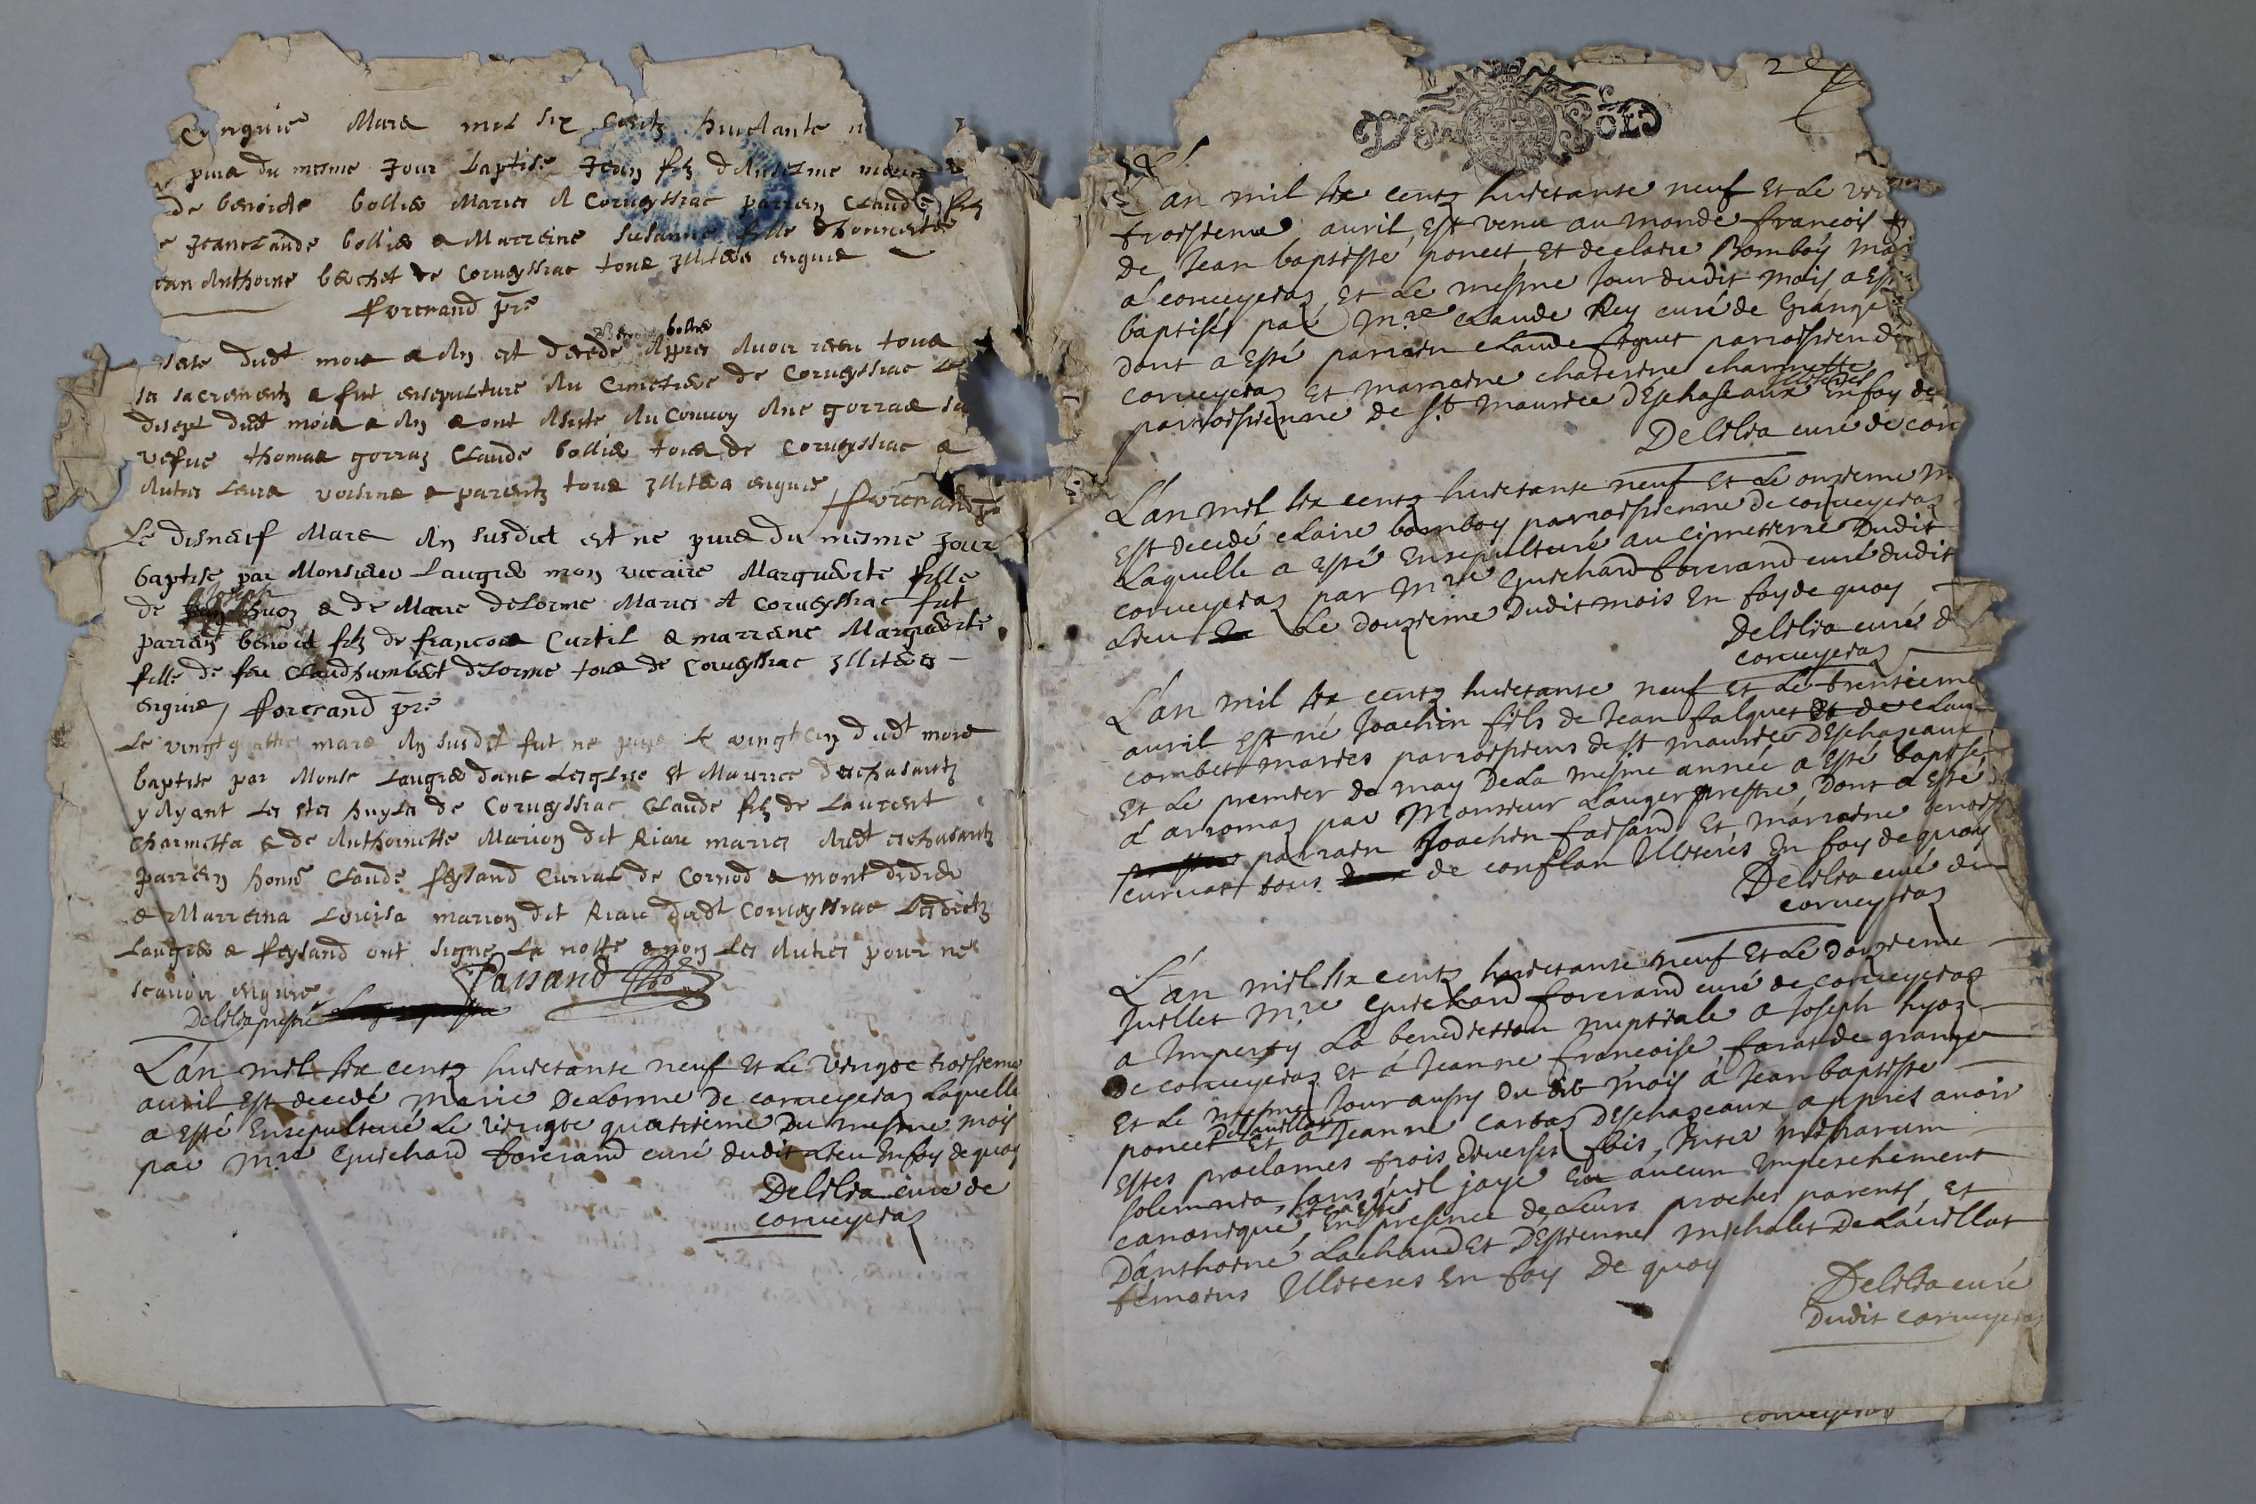 Cinquie Mars mil six centz huictante n
puis du mesme Jour baptise Jean filz d Anselme
de benoicte bollie Maries A Corveyssiac parrein Claude filz
e Jeanclaude bollie & Marreine susanne fille d honneste
ean Anthoine bechet de Corveyssiac tous Illiteres enquis
forerand pre
bollie
dudt mois & An est decede Appres Avoir receu tous
ses sacrements & fut ensepulture Au Cimetiere de Corveyssiac le
disept dudt mois & An & ont Assiste Au Convoy Ane gorras sa
vefue thomas gorraz Claude bollie tous de Corveyssiac &
Autres leurs voisins & parentz tous Illiteres enquis forerand pre
Le disneuf Mars An susdict est ne puis du mesme Jour
baptise par Monsieur Laugier mon vicaire Marguerite fille
de & de Marie delorme Maries A Corveyssiac fut
parrein benoict filz de francois Curtil & marreine Marguerite
fille de feu Claudhumbert delorme tous de Corveyssiac Illiteres
enquis forerand pre
Le vingt quattre mars An susdit fut ne puis le vingt cin dudt mois
baptise par Monsr Laugier dans Lesglise St Maurice deschasautz
y Ayant les stes huyles de Corveyssiac Claude filz de Laurent
Charmetta & de Anthoinette Marion dit Riau maries Audt eschasautz
parrein honie Claude feysand Curial de Cornod & mont didier
& Marreina Louisa marion dit Riau dudt Corveyssiac Lesdictz
Laugier & feysand ont signe La notte & non Les Autres pour ne
scavoir enquis
Faisand
Delilia prestre
L'an mil six centz huictante neuf et le vingte troisieme
avril est decedé Marie Delorme de corveyeriaz laquelle
a esté Ensepulturé le vingte quatrieme Du mesme mois
par Mre Guichard forerand curé dudit Lieu En foy de quoy
Delilia curé de
corveyeriaz
2e
SOLD
L'an mil six centz huictante neuf et le vin
troisieme avril est venu au monde francois
de Jean baptiste poncet et de claire Bomboy mar
a corveyeriaz et le mesme Jour dudit mois a est
baptisés par Mre claude Rey curé de Grange
dont a esté parrain claude paroissien de
corveyeriaz et marraine chaterine charmette
illiteres
parroissienne de st maurice d'Eschaseaux En foy de
Delilia curé de cor
L'an mil six centz huictante neuf et le onzieme m
Est decedé claire bomboy parroissienne de corveyeriaz
Laquelle a esté Ensepulturé au cimetierre Dudit
corveyeriaz par Mre Guichard forerand curé dudit
Lieu le douzieme Dudit mois En foy de quoy
Delilia curé d
corveyeriaz
L'an mil six centz huictante neuf et le trentieme
avril est né Joachin fils de Jean falquet et de clau
combet maries parroissiens de st maurice d'Eschazeaux
et le premier de may De la mesme année a esté baptisé
a arromaz par Monsieur Lauger prestre Dont a esté
parrain Joachin faisand et marraine benoist
curvat tous de conflan Illiterés En foy de quoy
Delilia curé du
corveyriaz
L'an mil six centz huictante neuf et le douzieme
Juillet Mre Guichard forerand curé de corveyeriaz
a Imperty La benediction nuptiale a Joseph hyoz
De corveyeriaz et a Jeanne francoise farat de grange
et le mesme Jour aussy Du dit mois a Jean baptiste
Delavillat
poncet et a Jeanne Carbaz D'Eschazeaux appres avoir
Estes proclames trois diverses fois Inter missarum
solemnia, sans quil jaye En aucun Impeschement
canonique, En presence de leurs proches parents, et
D'anthoine Lachaud et D'Estienne michalet De Lavillat
témoins Illiteres En foy De quoy
Delilia curé
Dudit corveyeriaz
corveyeriaz